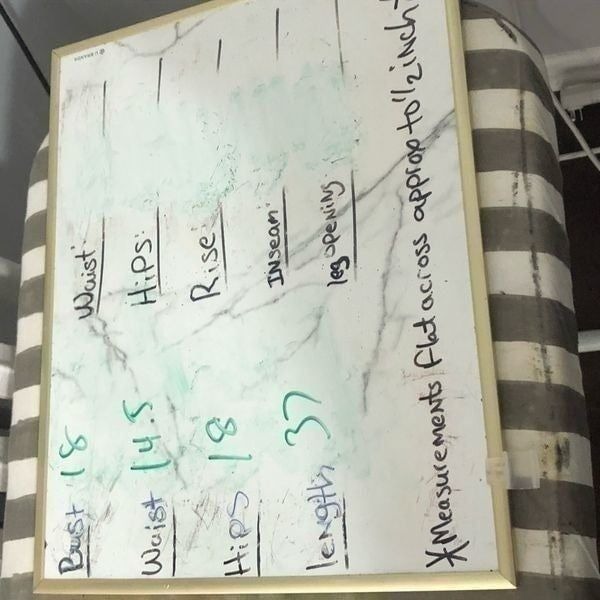 U BRANDS
Bust 18
Waist 14.5
Hips 18
length 37
Waist:
Hips:
Rise:
Inseam:
leg opening:
*Measurements flat across approp to 1/2 inch*